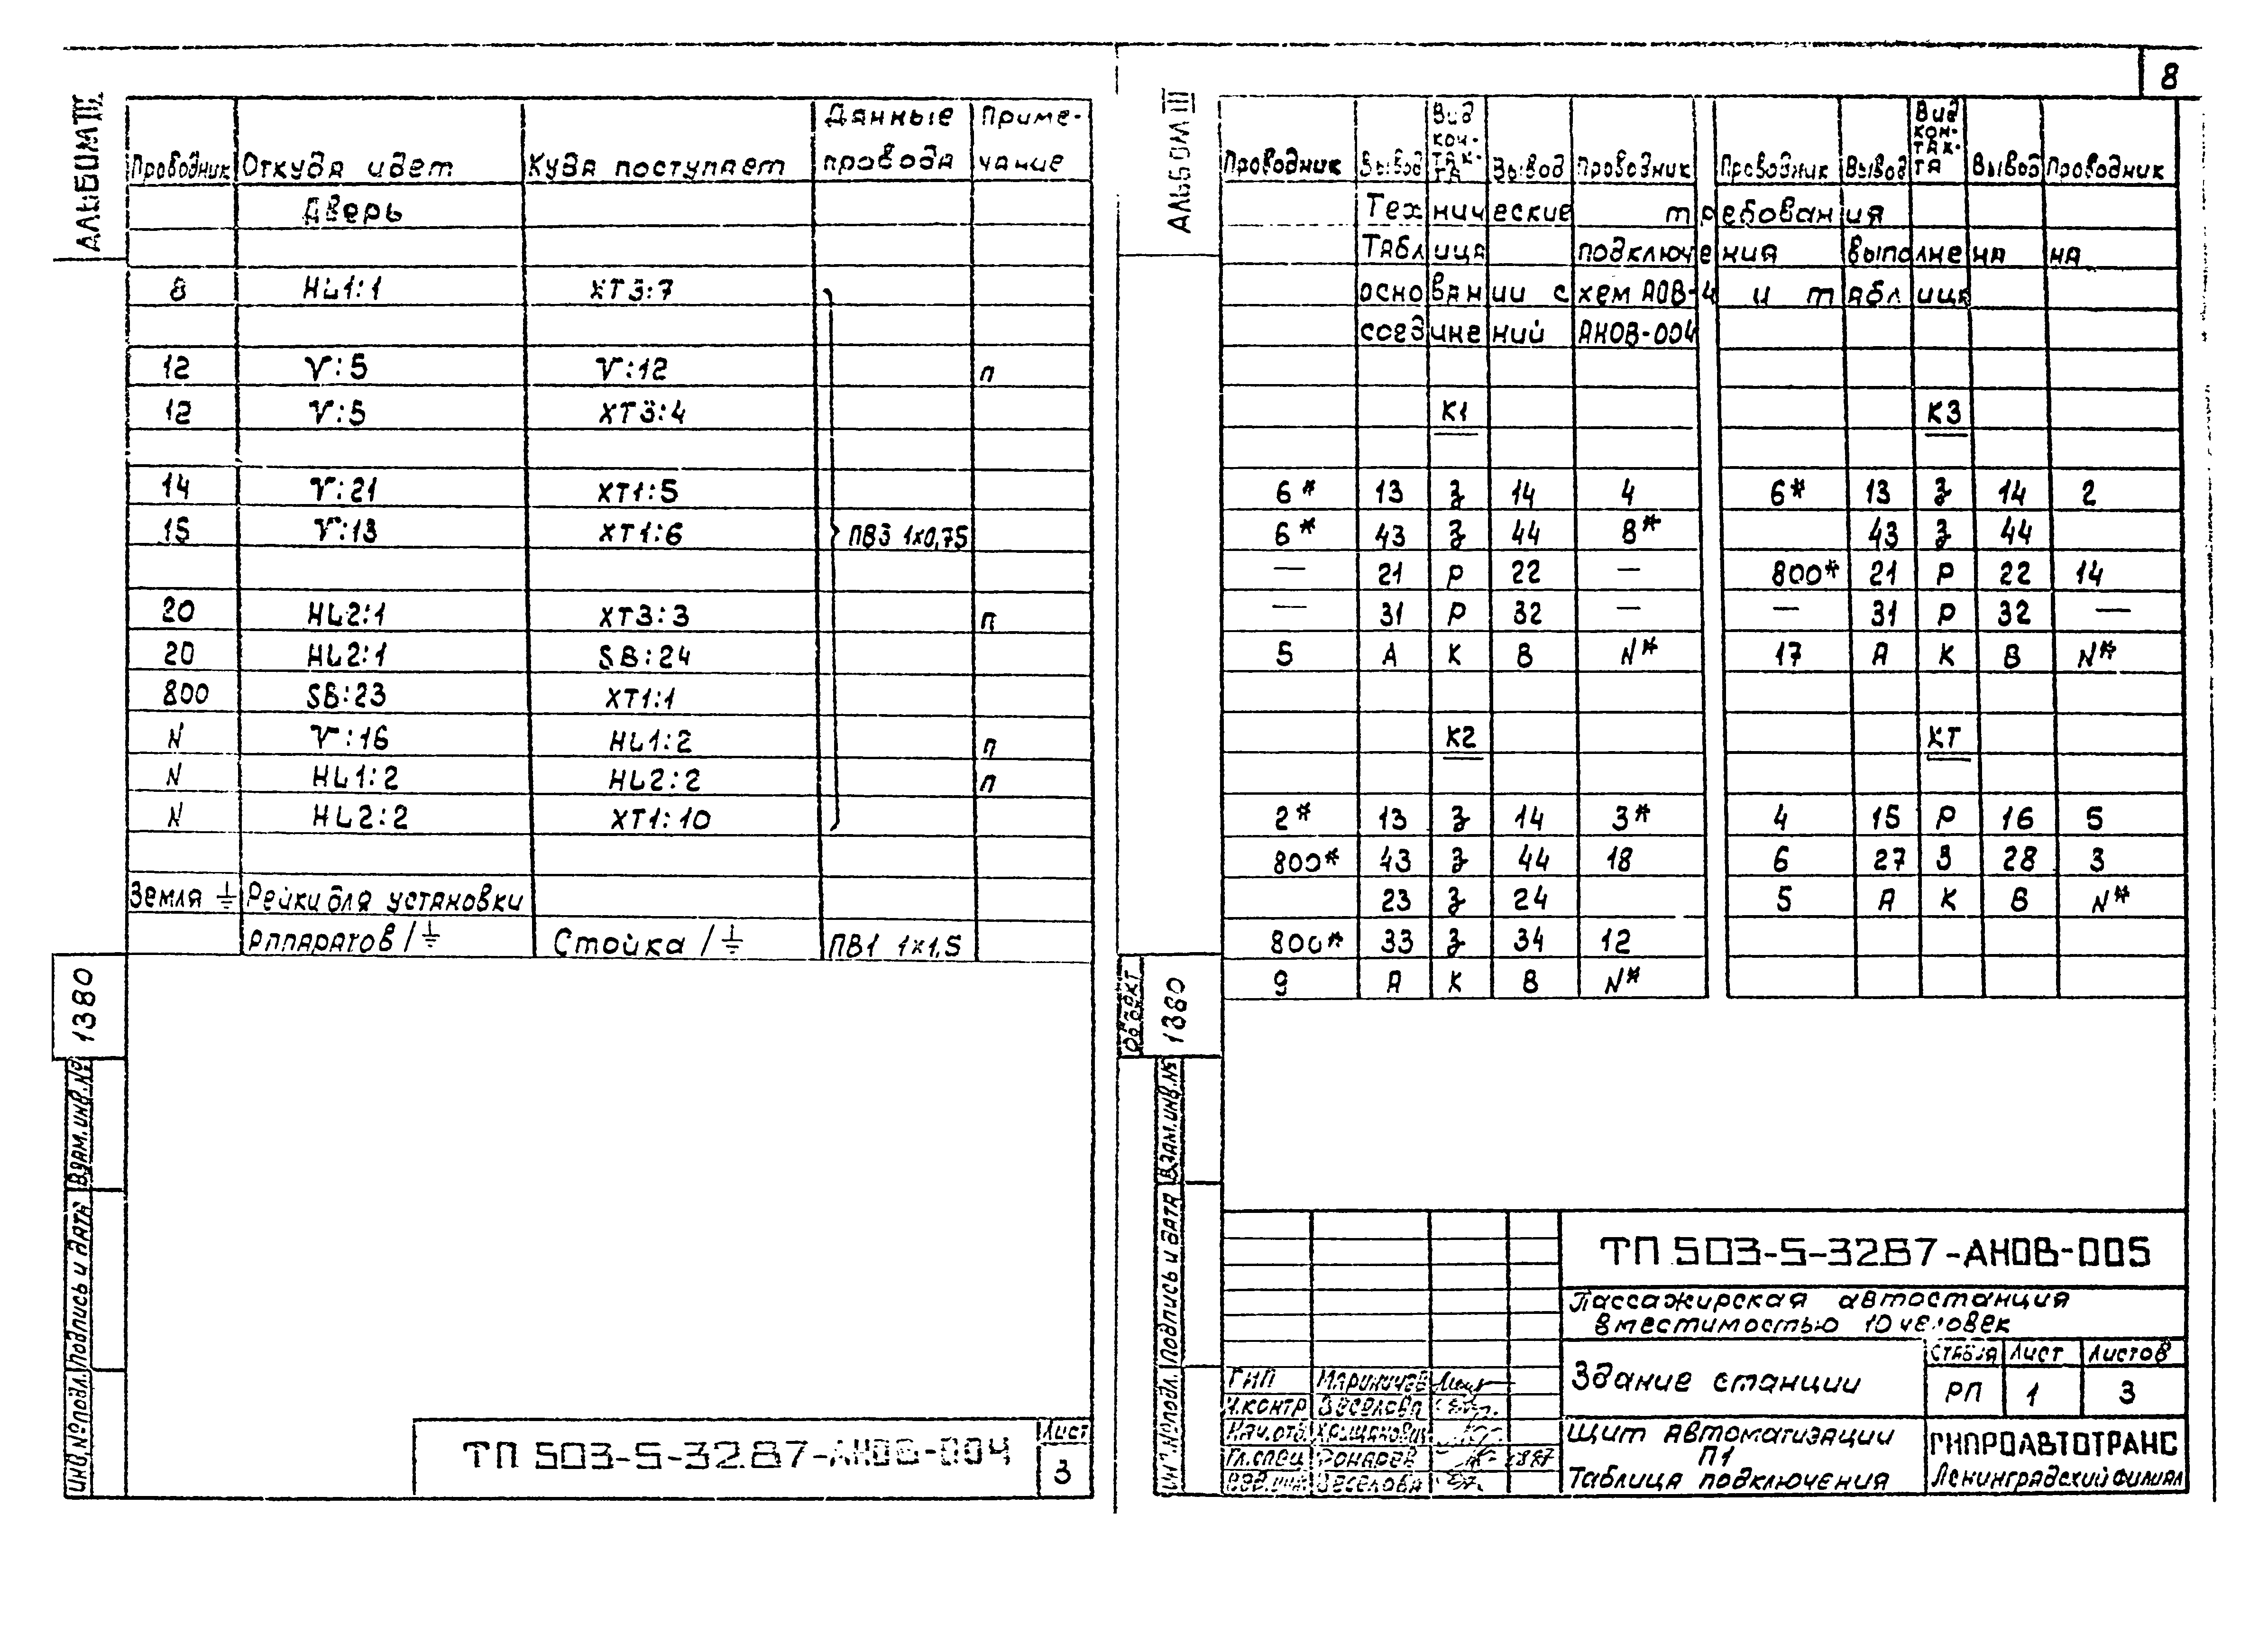 8
АЛЬБОМ III
Проводник Откуда идет Куда поступает Данные провода Приме-чание
Дверь
8 HL1:1 XT3:7
12 V:5 V:12 п
12 V:5 XT3:4
14 V:21 XT1:5
15 V:13 XT1:6 ПВ3 1х0,75
20 HL2:1 XT3:3 п
20 HL2:1 SB:24
800 SB:23 XT1:1
N V:16 HL1:2 п
N HL1:2 HL2:2 п
N HL2:2 XT1:10
Земля ⏚ Рейки для установки
аппаратов/⏚ Стойка/⏚ ПВ1 1х1,5
1380
Взам.инв.№
Подпись и дата
Инв.№подл.
ТП 503-5-32.87-АНОВ-004
Лист
3
АЛЬБОМ III
Проводник Вывод Вид кон-так-та Вывод Проводник Проводник Вывод Вид кон-так-та Вывод Проводник
Технические требования
Таблица подключения выполнена на
основании схем АОВ-4 и таблица
соединений АНОВ-004
К1 К3
6* 13 з 14 4 6* 13 з 14 2
6* 43 з 44 8* 43 з 44
— 21 р 22 — 800* 21 р 22 14
— 31 р 32 — — 31 р 32 —
5 А К В N* 17 А К В N*
К2 КТ
2* 13 з 14 3* 4 15 р 16 5
800* 43 з 44 18 6 27 З 28 3
23 з 24 5 А К В N*
800* 33 з 34 12
9 А К В N*
Объект
1380
Взам.инв.№
Подпись и дата
Инв.№подл.
ТП 503-5-32.87-АНОВ-005
Пассажирская автостанция
вместимостью 10 человек
Здание станции
Стадия Лист Листов
РП 1 3
ГИП Мариничев
Н.контр Веселова
Нач.отд.
Гл.спец
Вед.инж. Веселова
Щит автоматизации
П1
Таблица подключения
ГИПРОАВТОТРАНС
Ленинградский филиал